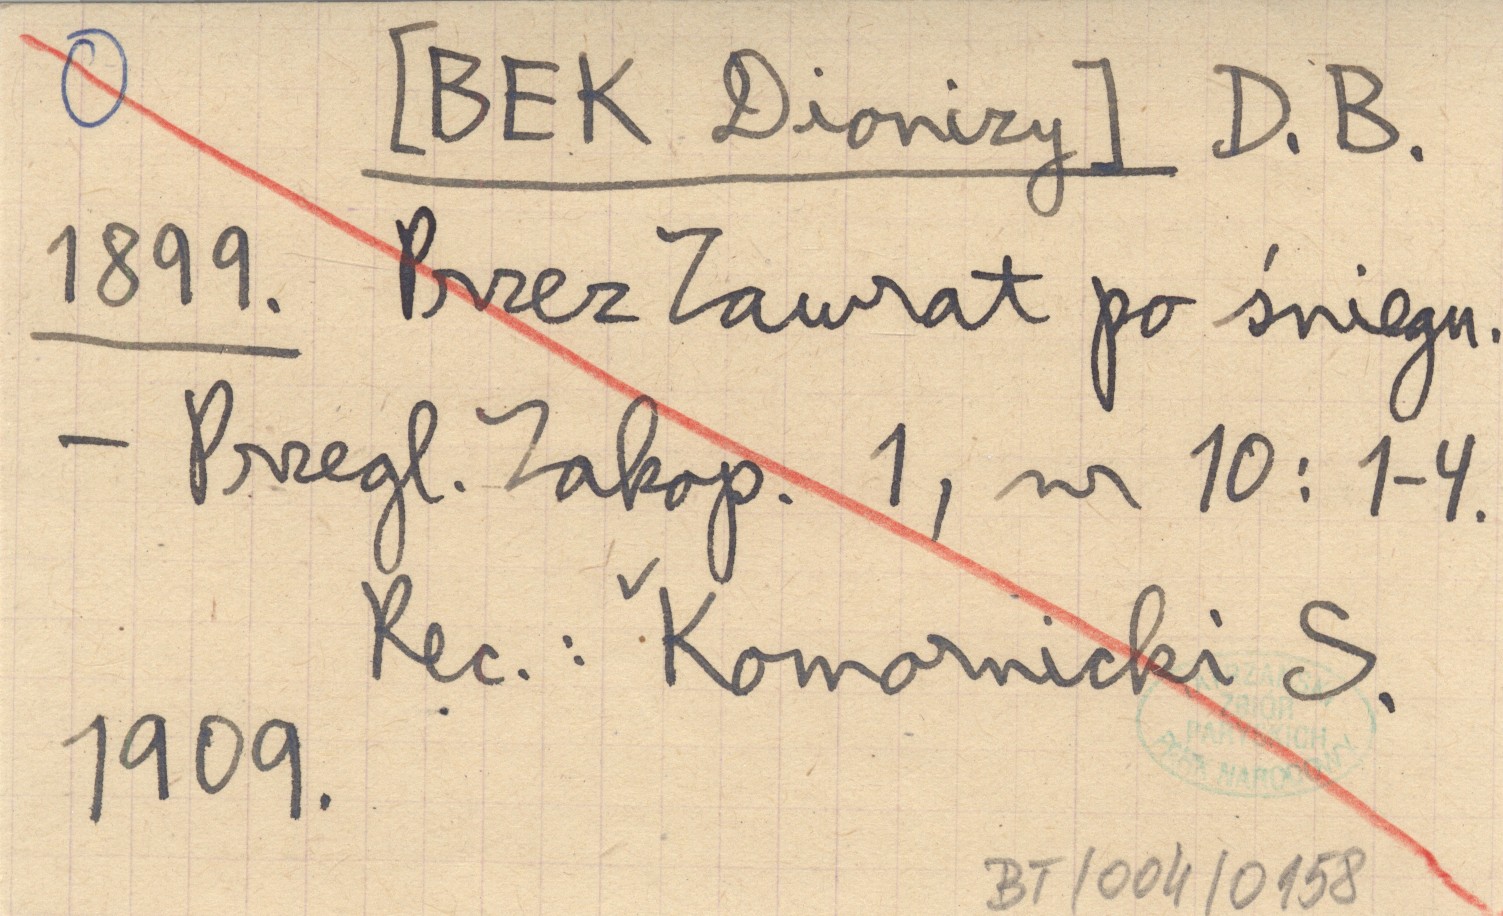 [BEK Dionizy] D.B.
1899. Przez Zawrat po śniegu.
– Przegl. Zakop. 1, nr 10: 1-4.
Rec.: ✓Komornicki S.
1909.
ZBIÓR
PARYSKICH
BT/004/0158